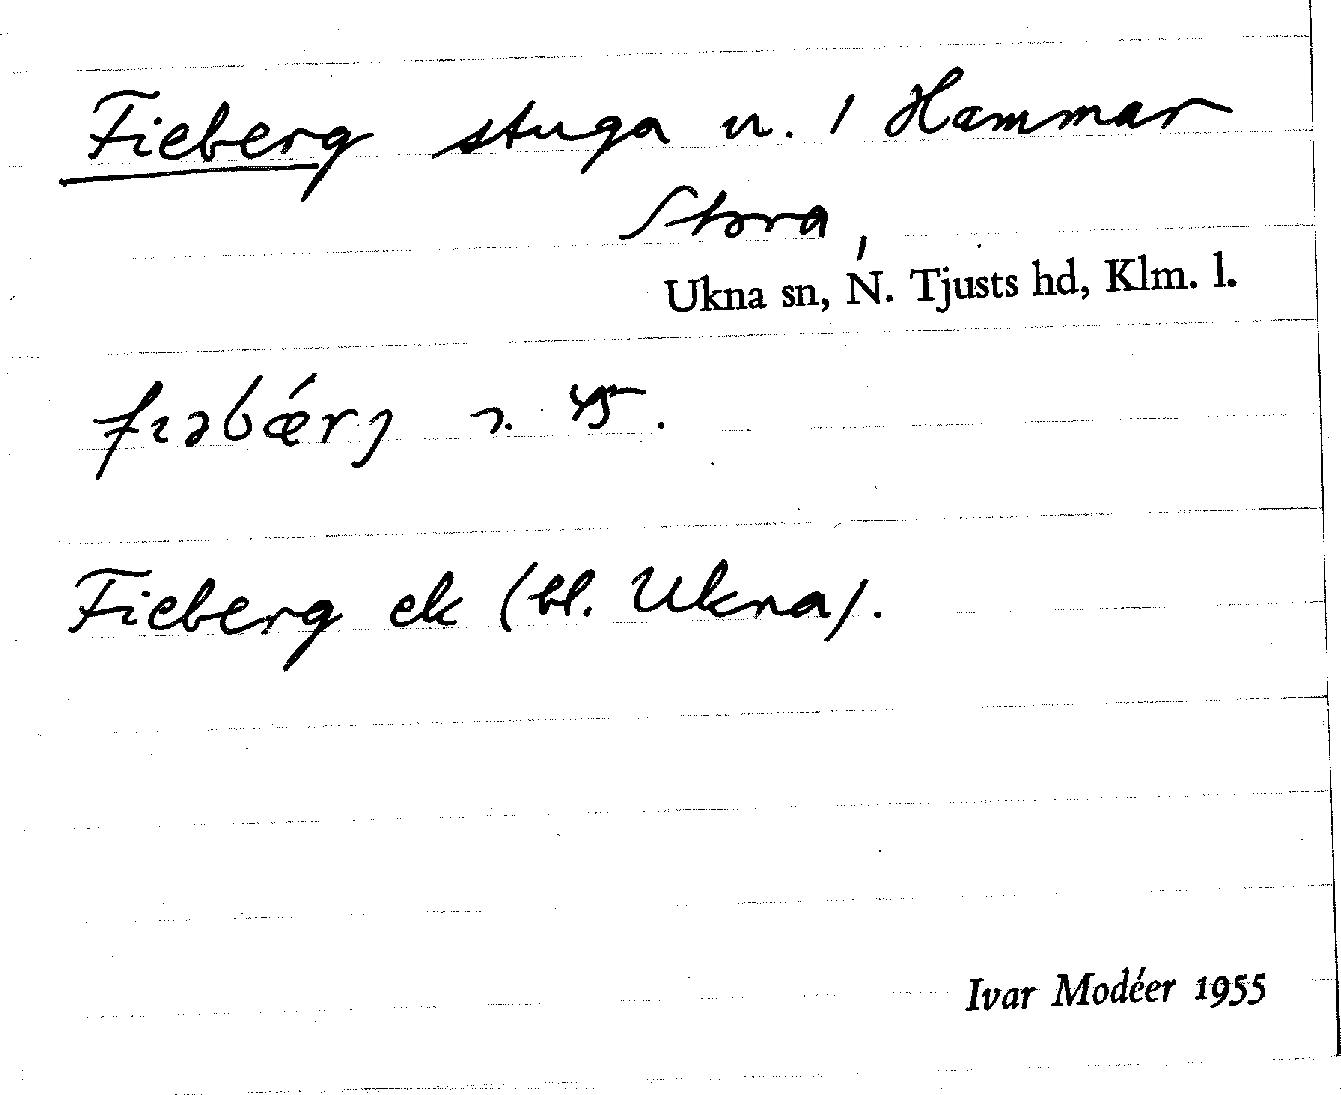 Fieberg stuga u. / Hammar
Stora,
Ukna sn, N. Tjusts hd, Klm. l.
fıəbǽrj
Fieberg ek (bl. Ukna).
Ivar Modéer 1955